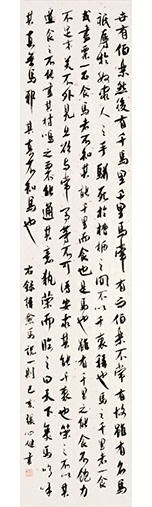 世有伯樂然後有千里馬千里馬常有而伯樂不常有故雖有名馬
祇辱於奴隸人之手駢死於槽櫪之間不以千里稱也馬之千里者一食
或盡粟一石食馬者不知其能千里而食也是馬雖有千里之能食不飽力
不足才美不外見且欲與常馬等不可得安求其能千里也策之不以其
道食之不能盡其材鳴之不能通其意執策而臨之曰天下無馬嗚呼
其真無馬邪其真不知馬也 右錄韓愈馬說一則己亥張心健書